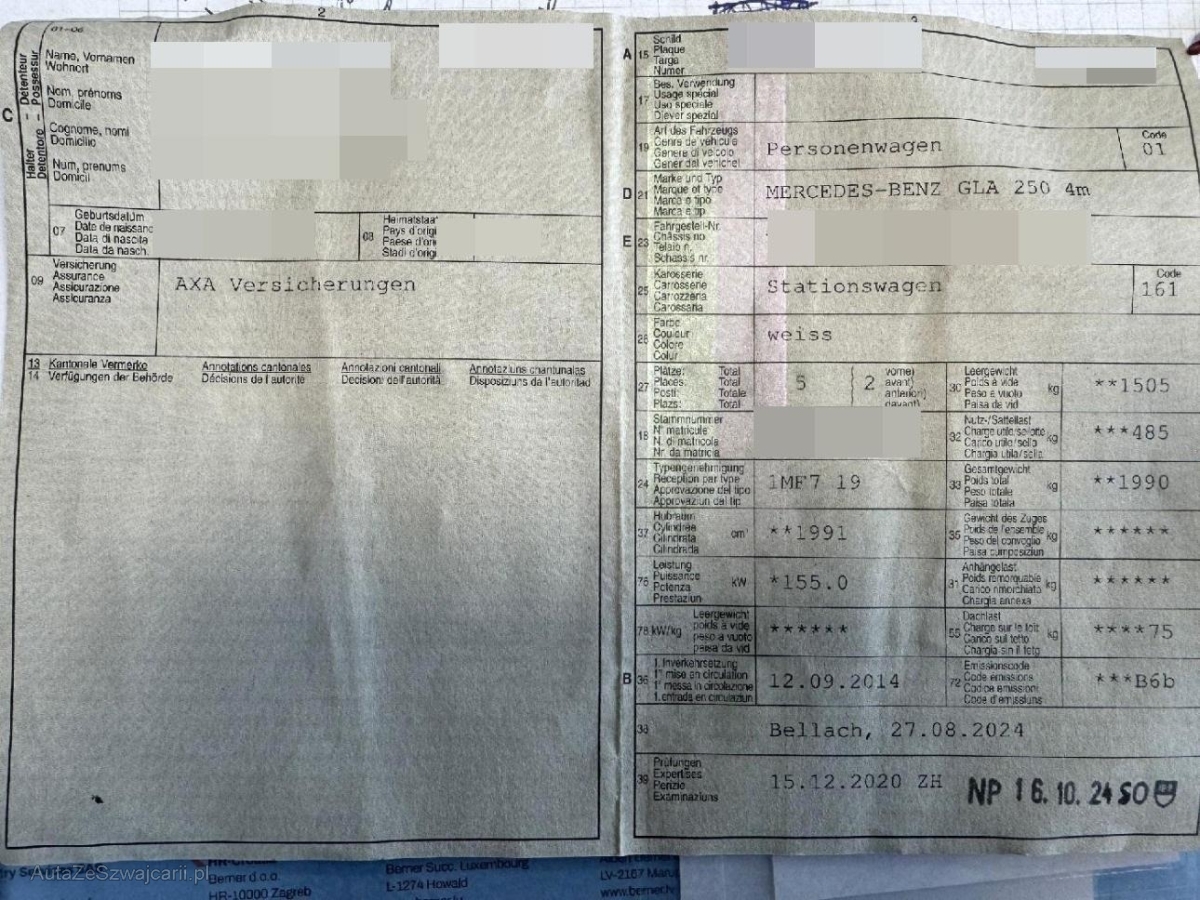 01-06
2
3
C
Halter – Détenteur
Detentore – Possessur
Name, Vornamen
Wohnort
Nom, prénoms
Domicile
Cognome, nomi
Domicilio
Num, prenums
Domicil
07
Geburtsdatum
Date de naissanc
Data di nascita
Data da nasch.
08
Heimatstaat
Pays d'origi
Paese d'ori
Stadi d'orig
09
Versicherung
Assurance
Assicurazione
Assicuranza
AXA Versicherungen
13 Kantonale Vermerke Annotations cantonales Annotazioni cantonali Annotaziuns chantunalas
14 Verfügungen der Behörde Décisions de l'autorité Decisioni dell'autorità Disposiziuns da l'autoritad
A 15
Schild
Plaque
Targa
Numer
17
Bes. Verwendung
Usage spécial
Uso speciale
Diever spezial
19
Art des Fahrzeugs
Genre de véhicule
Genere di veicolo
Gener dal vehichel
Personenwagen
Code
01
D 21
Marke und Typ
Marque et type
Marca e tipo
Marca e tip
MERCEDES-BENZ GLA 250 4m
E 23
Fahrgestell-Nr.
Châssis no
Telaio n.
Schassis nr.
25
Karosserie
Carrosserie
Carrozzeria
Carossaria
Stationswagen
Code
161
26
Farbe
Couleur
Colore
Colur
weiss
27
Plätze: Total
Places: Total
Posti: Totale
Plazs: Total
5 { 2
vorne)
avant)
anteriori)
davant)
30
Leergewicht
Poids à vide
Peso a vuoto
Paisa da vid
kg
**1505
18
Stammnummer
N° matricule
N. di matricola
Nr. da matricla
32
Nutz-/Sattellast
Charge utile/sellette
Carico utile/sella
Chargia utila/sella
kg
***485
24
Typengenehmigung
Réception par type
Approvazione del tipo
Approvaziun dal tip
1MF7 19
33
Gesamtgewicht
Poids total
Peso totale
Paisa totala
kg
**1990
37
Hubraum
Cylindrée
Cilindrata
Cilindrada
cm³
**1991
35
Gewicht des Zuges
Poids de l'ensemble
Peso del convoglio
Paisa cumposiziun
kg
******
76
Leistung
Puissance
Potenza
Prestaziun
kW
*155.0
31
Anhängelast
Poids remorquable
Carico rimorchiato
Chargia annexa
kg
******
78 kW/kg
Leergewicht
poids à vide
peso a vuoto
paisa da vid
******
55
Dachlast
Charge sur le toit
Carico sul tetto
Chargia sin il tetg
kg
****75
B 36
1. Inverkehrsetzung
1re mise en circulation
1a messa in circolazione
1. entrada en circulaziun
12.09.2014
72
Emissionscode
Code émissions
Codice emissioni
Code d'emissiuns
***B6b
38
Bellach, 27.08.2024
39
Prüfungen
Expertises
Perizie
Examinaziuns
15.12.2020 ZH
NP 16.10.24 SO
AutaZeSzwajcarii.pl
Berner d.o.o.
HR-10000 Zagreb
Berner Succ. Luxembourg
L-1274 Howald
www.berner.lu
LV-2167 Maru
www.berner